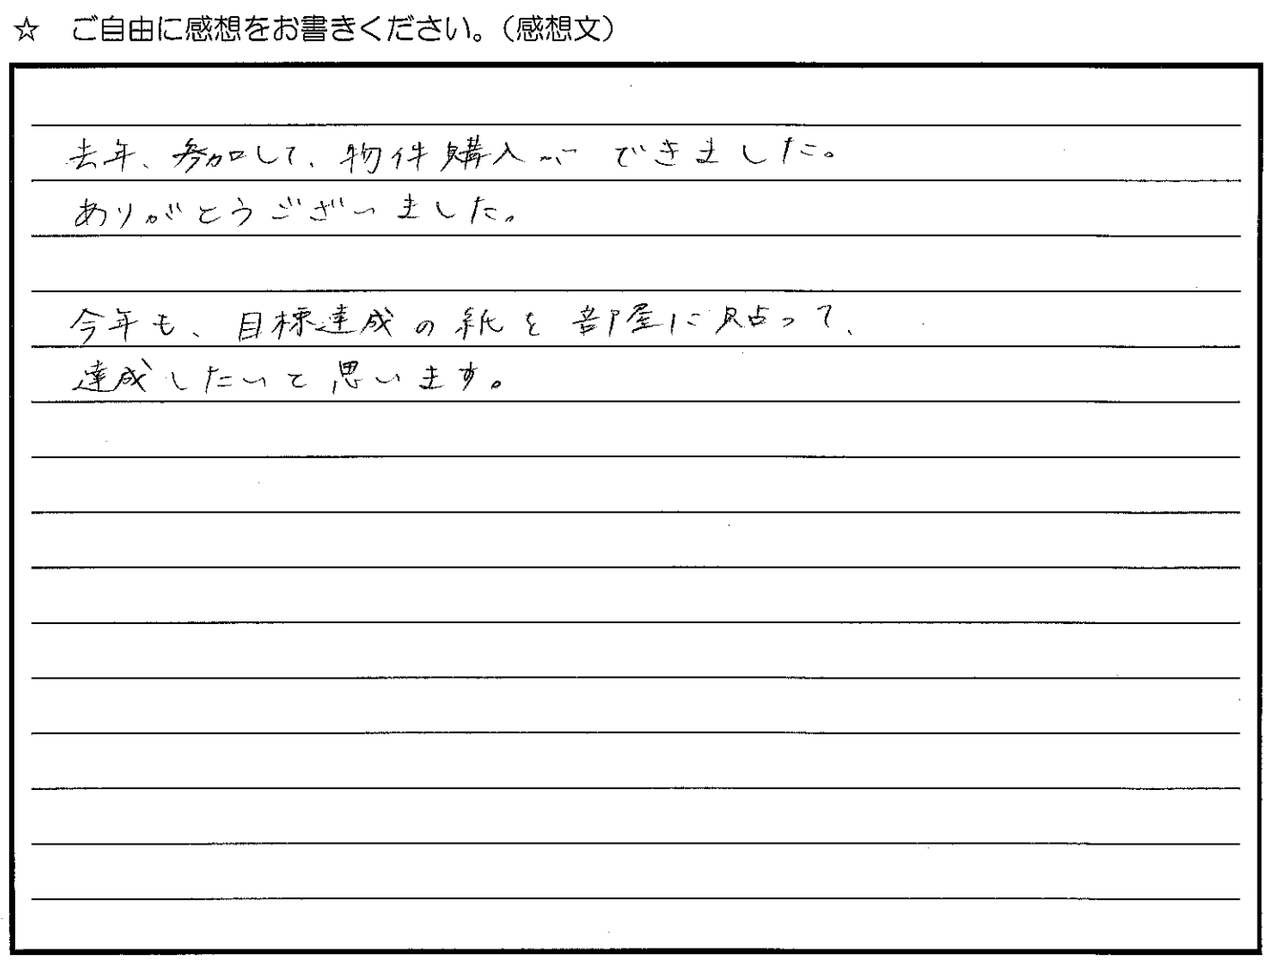 ☆ ご自由に感想をお書きください。（感想文）
去年、参加して、物件購入ができました。
ありがとうございました。
今年も、目標達成の紙を部屋に貼って、
達成したいと思います。